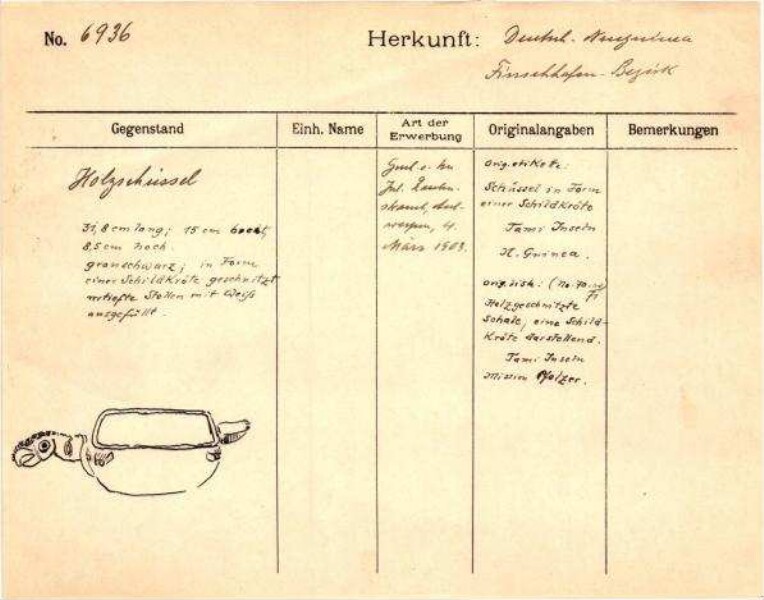 No. 6936
Herkunft: Deutsch-Neuguinea
Finschhafen-Bezirk
Gegenstand
Einh. Name
Art der
Erwerbung
Originalangaben
Bemerkungen
Holzschüssel
31,8 cm lang; 15 cm
8,5 cm hoch.
grauschwarz; in Form
einer Schildkröte geschnitzt
vertiefte Stellen mit Weiß
ausgefüllt.
Jul.
4.
März 1903.
Orig. etikette:
Schüssel in Form
einer Schildkröte
Tami Inseln
N. Guinea.
Orig. lisk: (No. 70
71
Holzgeschnitzte
Schale, eine Schild-
kröte darstellend.
Tami Inseln
Mission